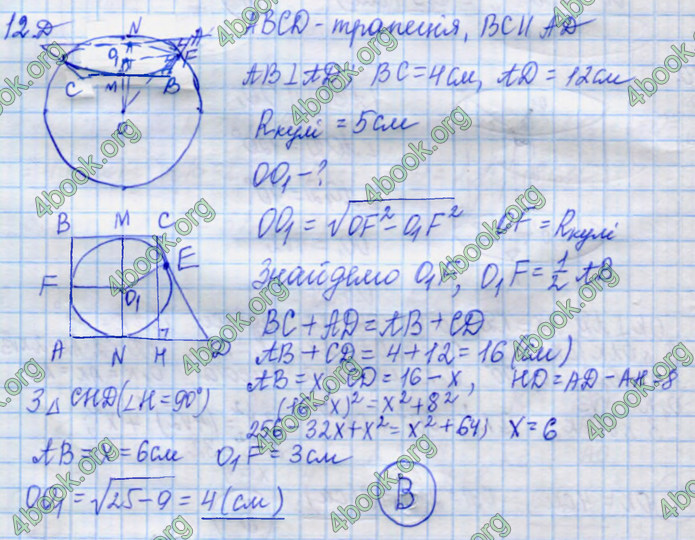 12.
ABCD - трапеція, BC || AD
AB ⊥ AD; BC = 4 см, AD = 12 см
Rкулі = 5 см
OO₁ - ?
OO₁ = √(OF² - O₁F²) OF = Rкулі
Знайдемо O₁F, O₁F = ½ AB
BC + AD = AB + CD
AB + CD = 4 + 12 = 16 (см)
AB = x CD = 16 - x, HD = AD - AH = 8
З △ CHD (∠H = 90°)
(16 - x)² = x² + 8²
256 - 32x + x² = x² + 64; x = 6
AB = x = 6 см O₁F = 3 см
OO₁ = √(25 - 9) = 4 (см)
B
N
F
C M B
O
B M C
F O₁ E
A N H D
4book.org